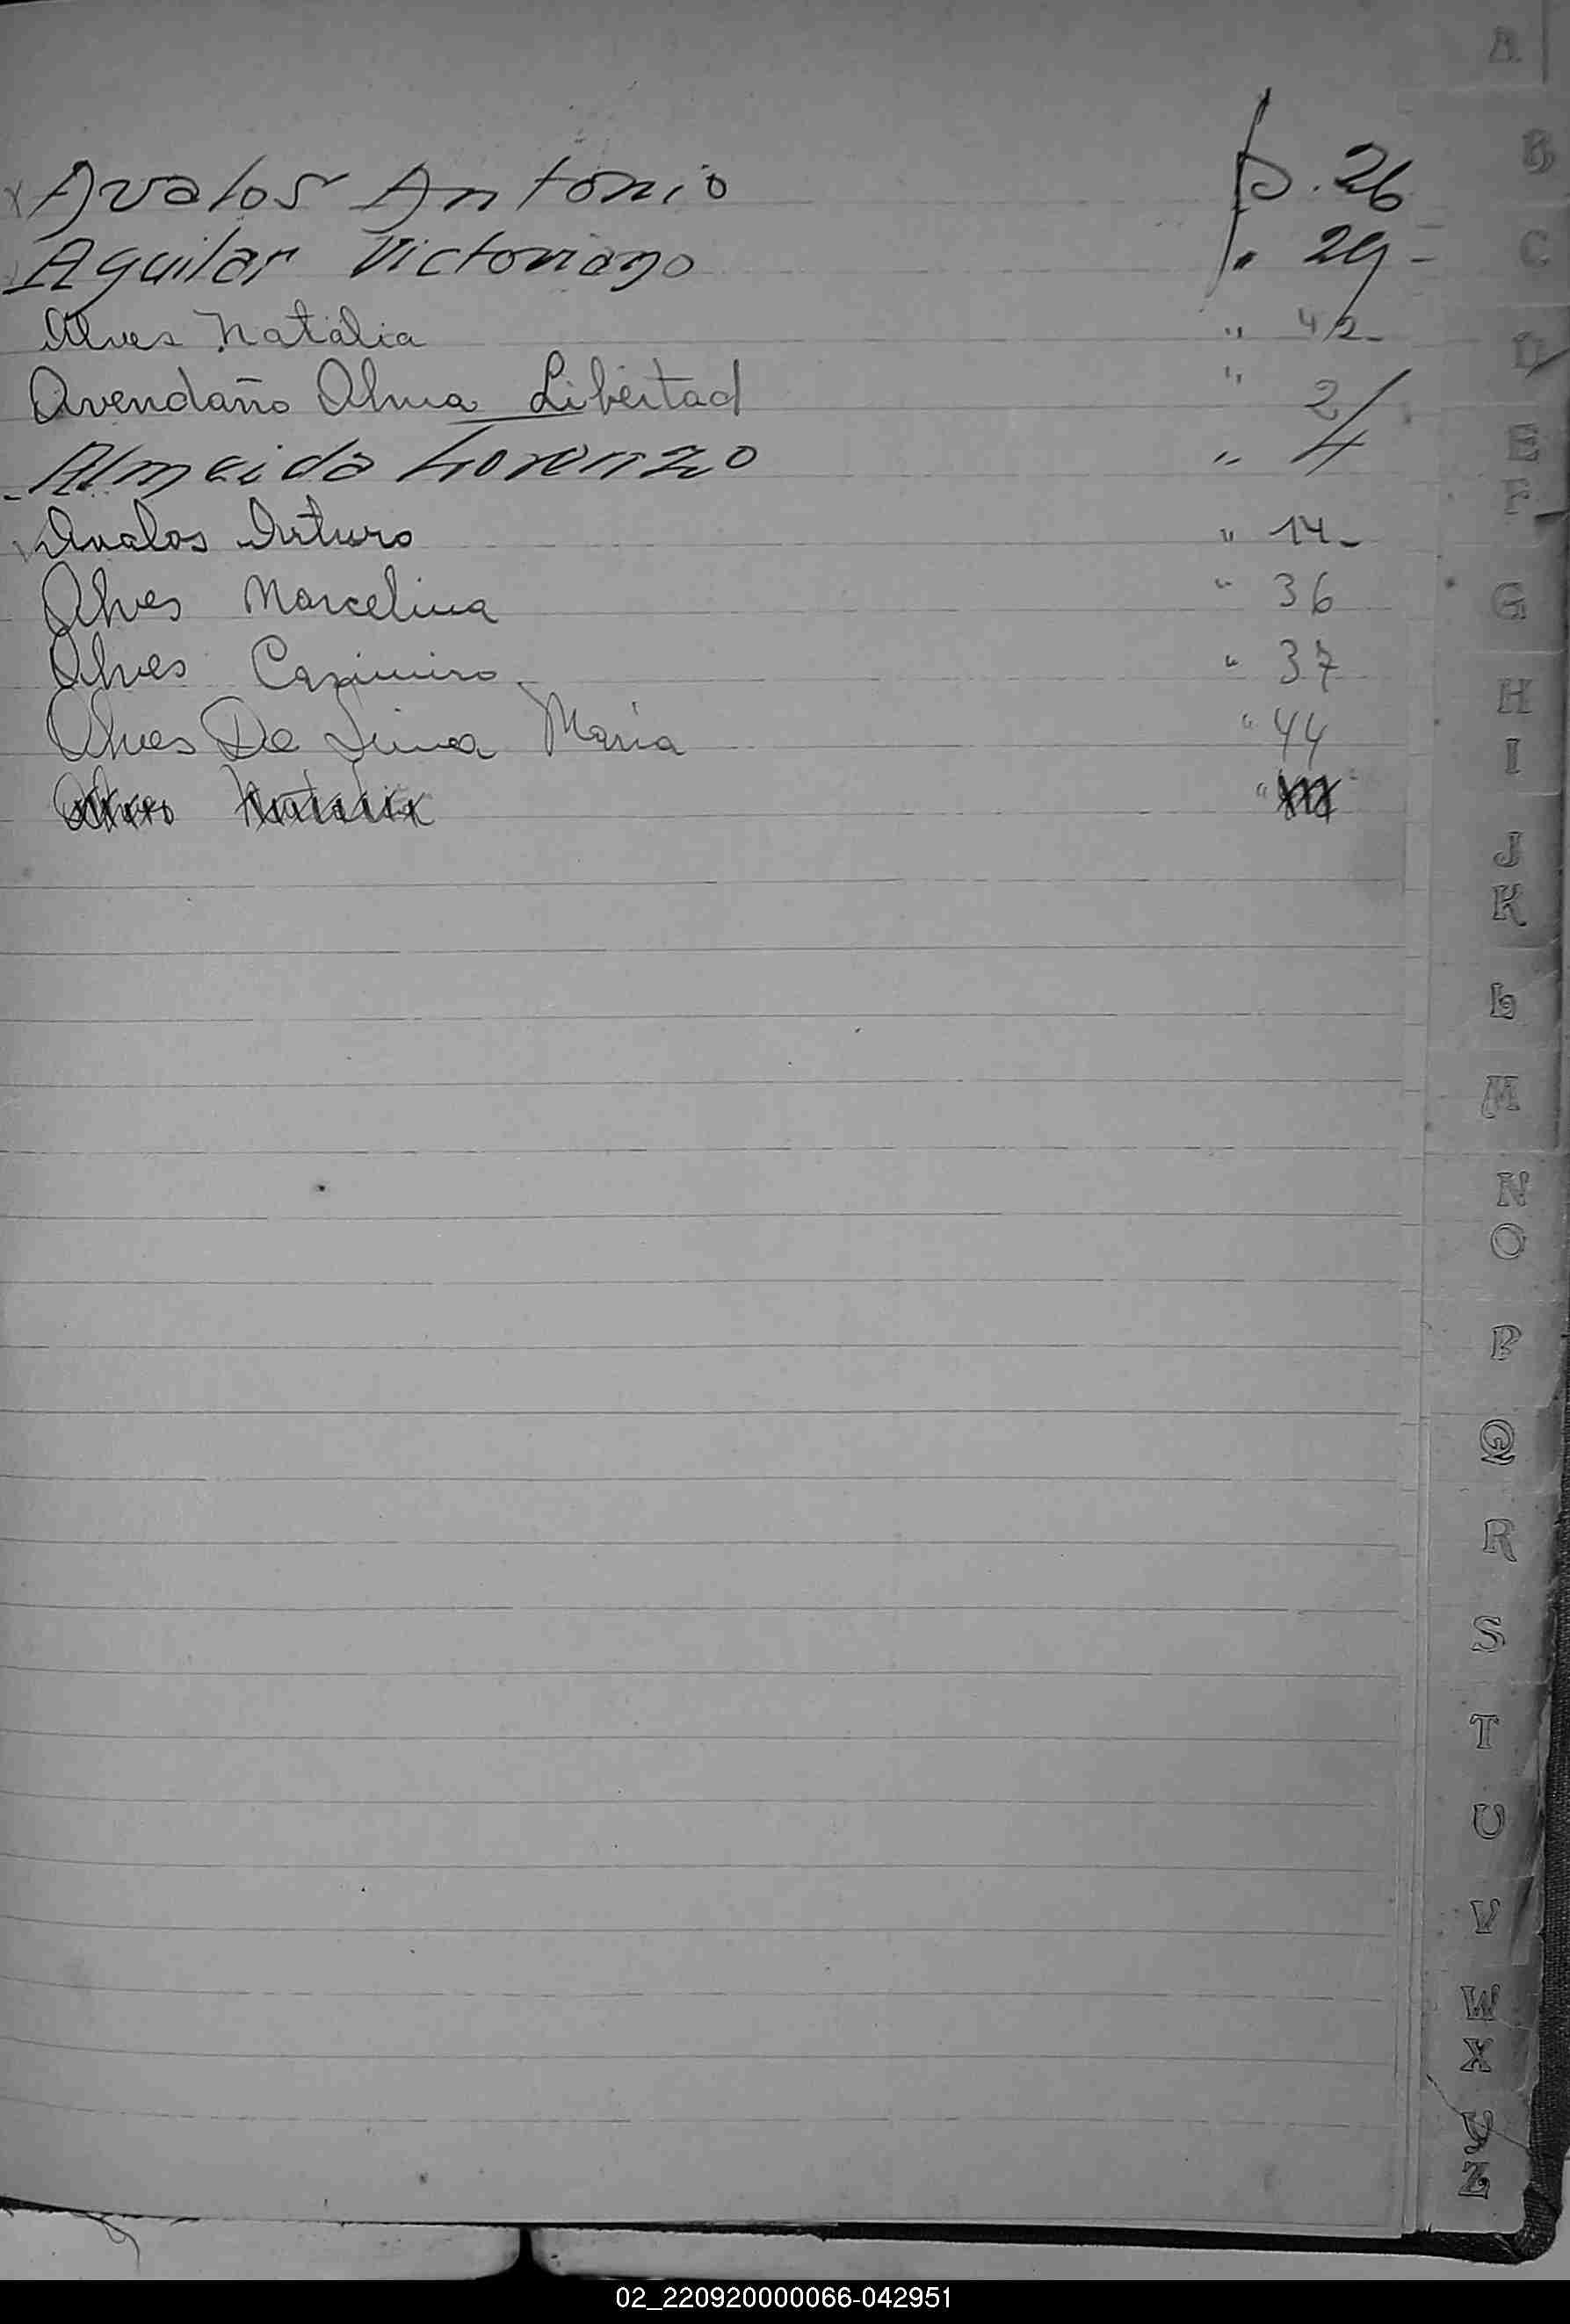 A
Avalos Antonio p. 26
Aguilar Victoriano " 29-
Alves Natalia " 42-
Avendaño Alma Libertad " 2
Almeida Lorenzo " 4
Avalos Arturo " 14-
Alves Marcelina " 36
Alves Casimiro " 37
Alves De Lima María " 44
Alves Natalia "
B
C
D
E
F
G
H
I
J
K
L
M
N
O
P
Q
R
S
T
U
V
W
X
Y
Z
02_220920000066-042951